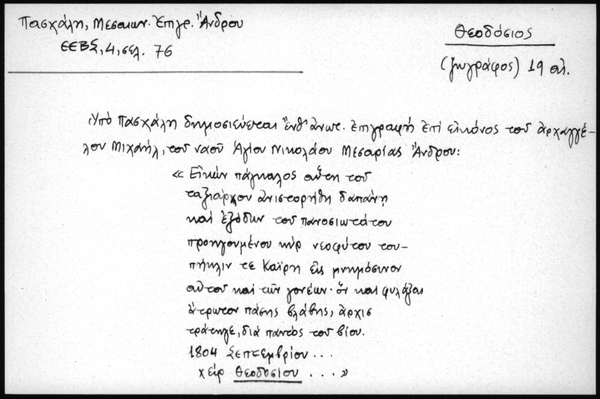 Πασχάλη, Μεσαιων. Ἐπιγρ. Ἄνδρου
ΕΕΒΣ, 4, σελ. 76
Θεοδόσιος
(ζωγράφος) 19 αἰ.
Ὑπὸ Πασχάλη δημοσιεύεται ἔνθ' ἀνωτ. ἐπιγραφὴ ἐπὶ εἰκόνος τοῦ ἀρχαγγέ-
λου Μιχαήλ, τοῦ ναοῦ Ἁγίου Νικολάου Μεσαριᾶς Ἄνδρου:
« Εἰκὼν πάγκαλος αὕτη τοῦ
ταξιάρχου ἀνιστορήθη δαπάνη
καὶ ἐξόδων τοῦ πανοσιωτάτου
προηγουμένου κὺρ νεοφύτου του-
πήκλιν τε Καΐρη εἰς μνημόσυνον
αὐτοῦ καὶ τῶν γονέων· ὃν καὶ φυλάξαι
ἄτρωτον πάσης βλάβης, ἀρχισ
τράτηγε, διὰ παντὸς τοῦ βίου.
1804 Σεπτεμβρίου ...
χεὶρ Θεοδοσίου ... »